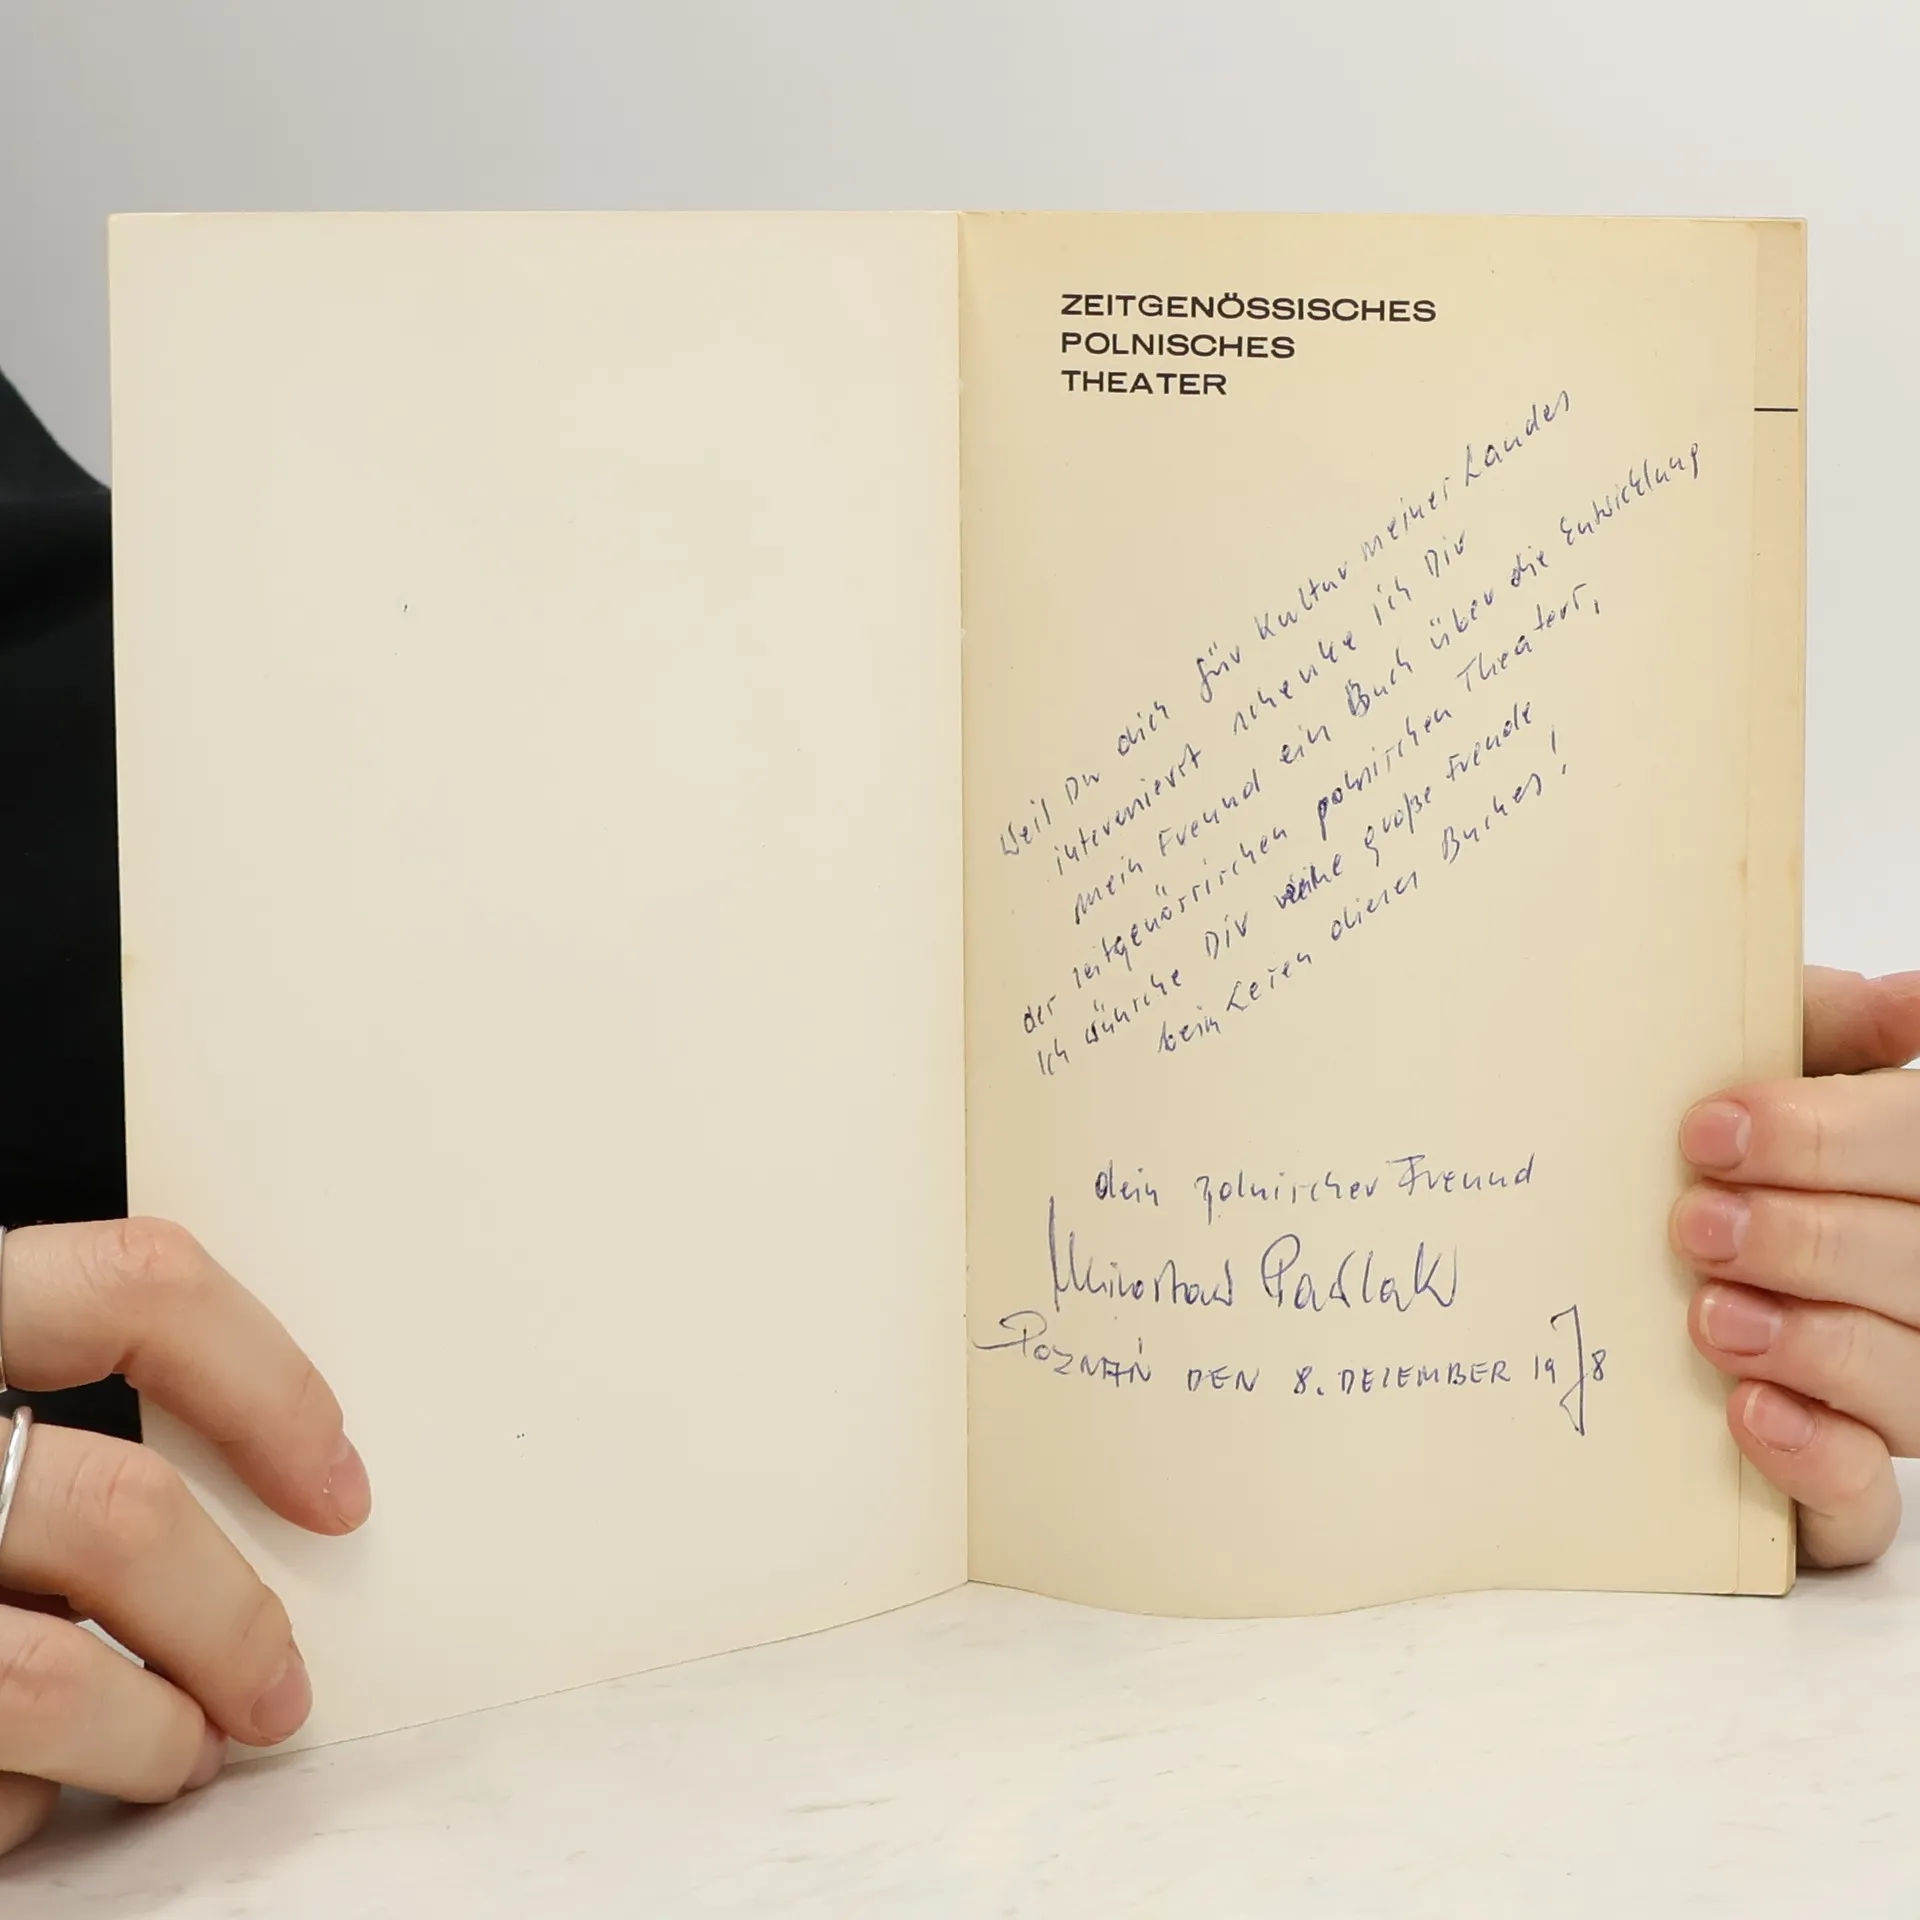 ZEITGENÖSSISCHES
POLNISCHES
THEATER
Weil Du dich für Kultur meines Landes
interesierst schenke ich Dir
mein Freund ein Buch über die Entwicklung
des zeitgenössischen polnischen Theaters,
Ich wünsche Dir große Freude
beim Lesen dieses Buches!
dein polnischer Freund
Pawlak
POZNAŃ DEN 8. DEZEMBER 1978